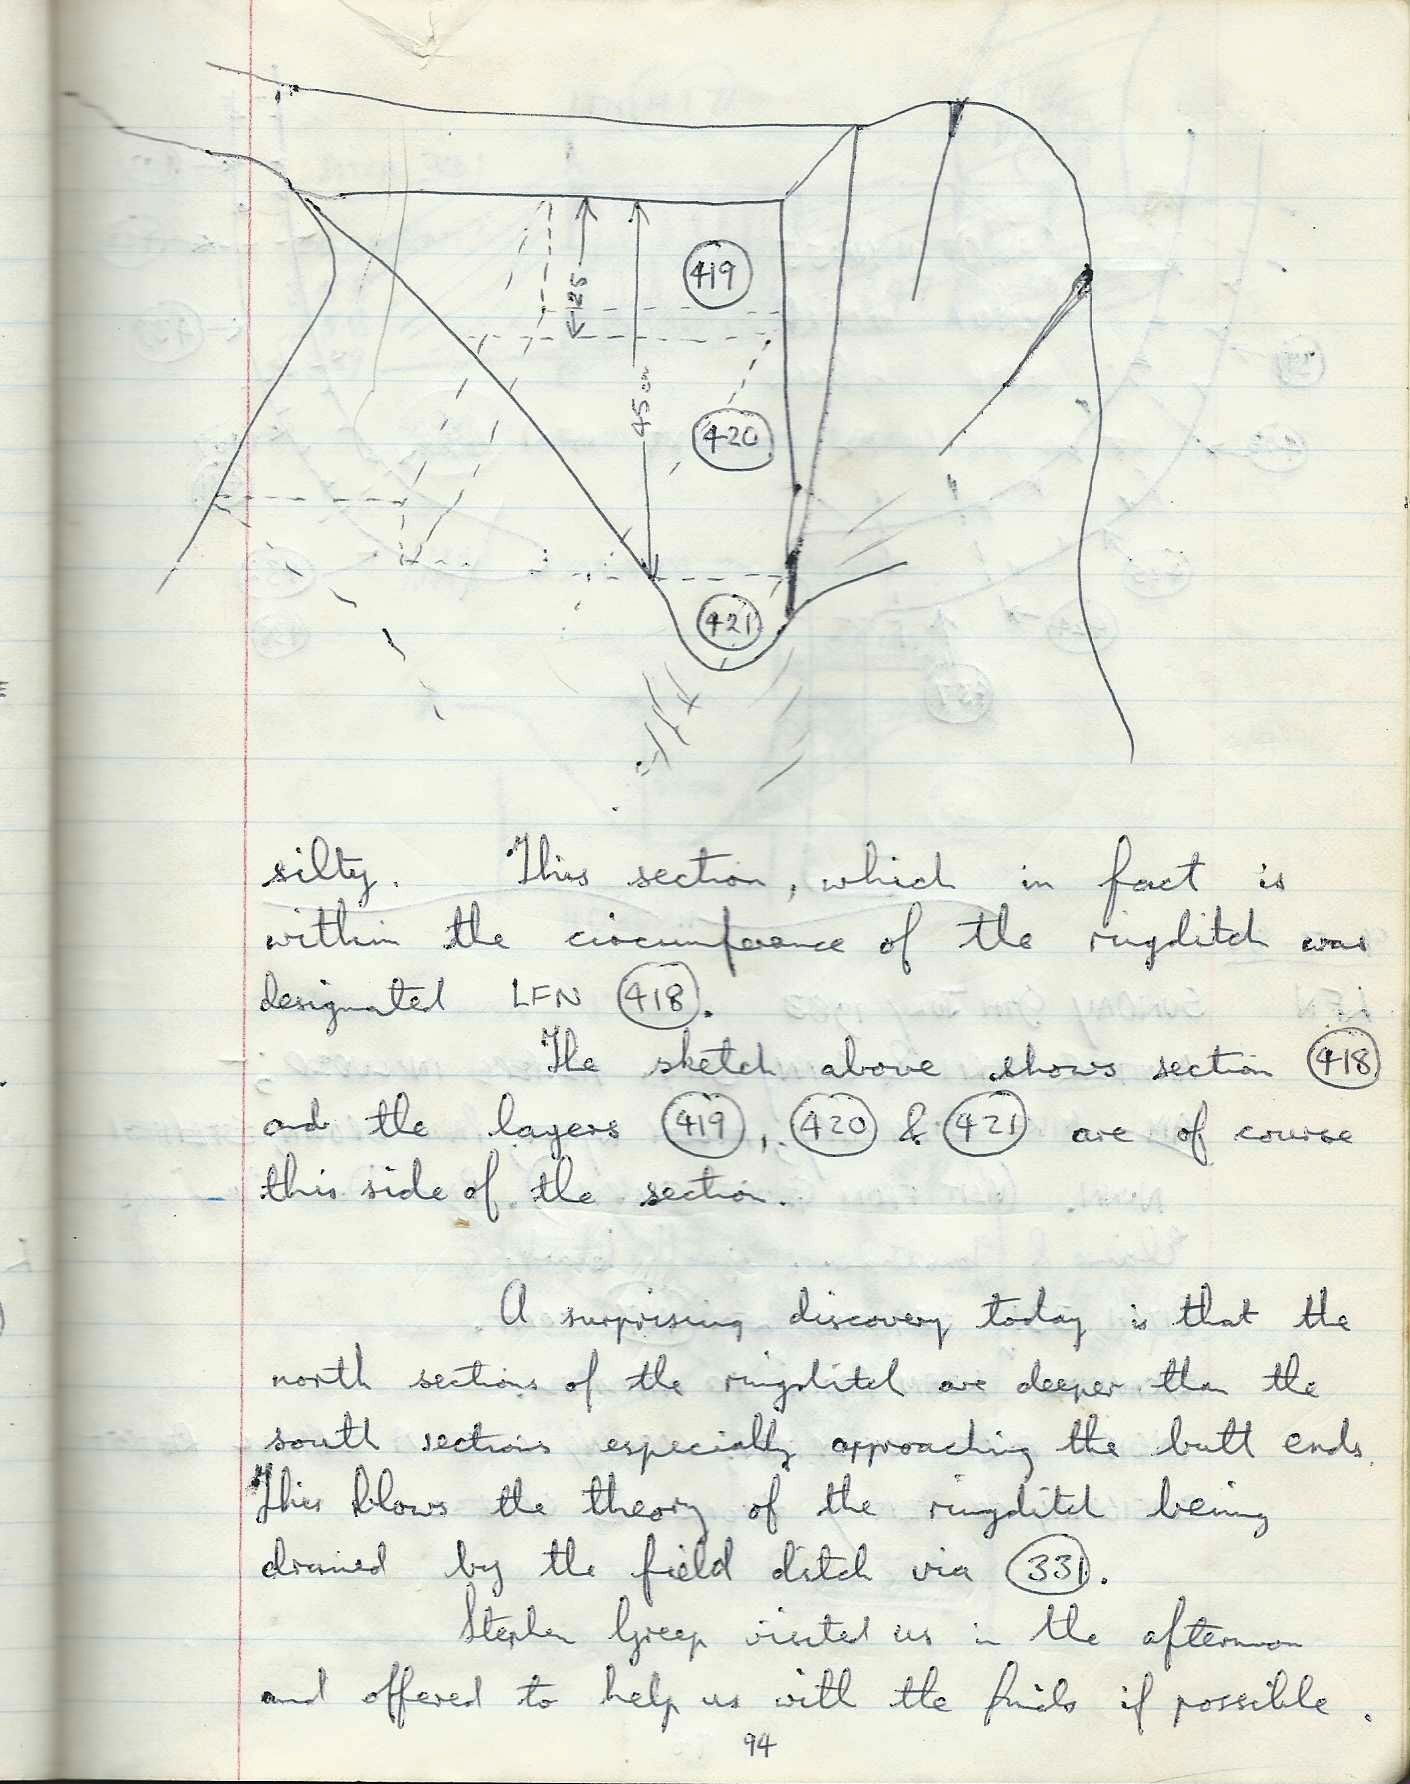 419
25
45cm
420
421
silty. This section, which in fact is
within the circumference of the ringditch was
designated LFN 418.
The sketch above shows section 418
and the layers 419, 420 & 421 are of course
this side of the section.
A surprising discovery today is that the
north sections of the ringditch are deeper than the
south sections especially approaching the butt ends.
This blows the theory of the ringditch being
drained by the field ditch via 331.
Stephen Greep visited us in the afternoon
and offered to help us with the finds if possible.
94